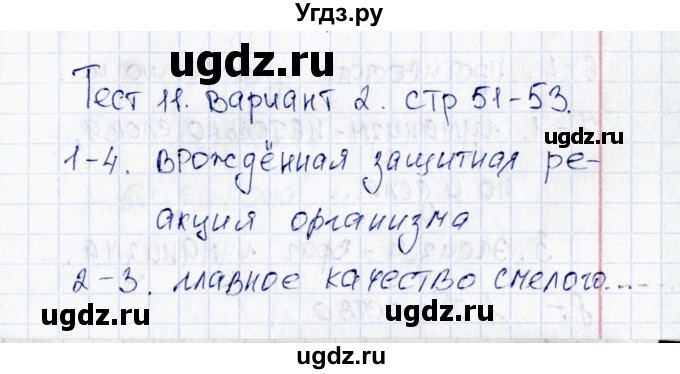 Угдз.ру
ugdz.ru
Тест 11. Вариант 2. стр 51-53.
ugdz.ru
1-4. врождённая защитная ре-
акция организма
2-3. главное качество смелого...
ugdz.ru ugdz.ru
ugdz.ru